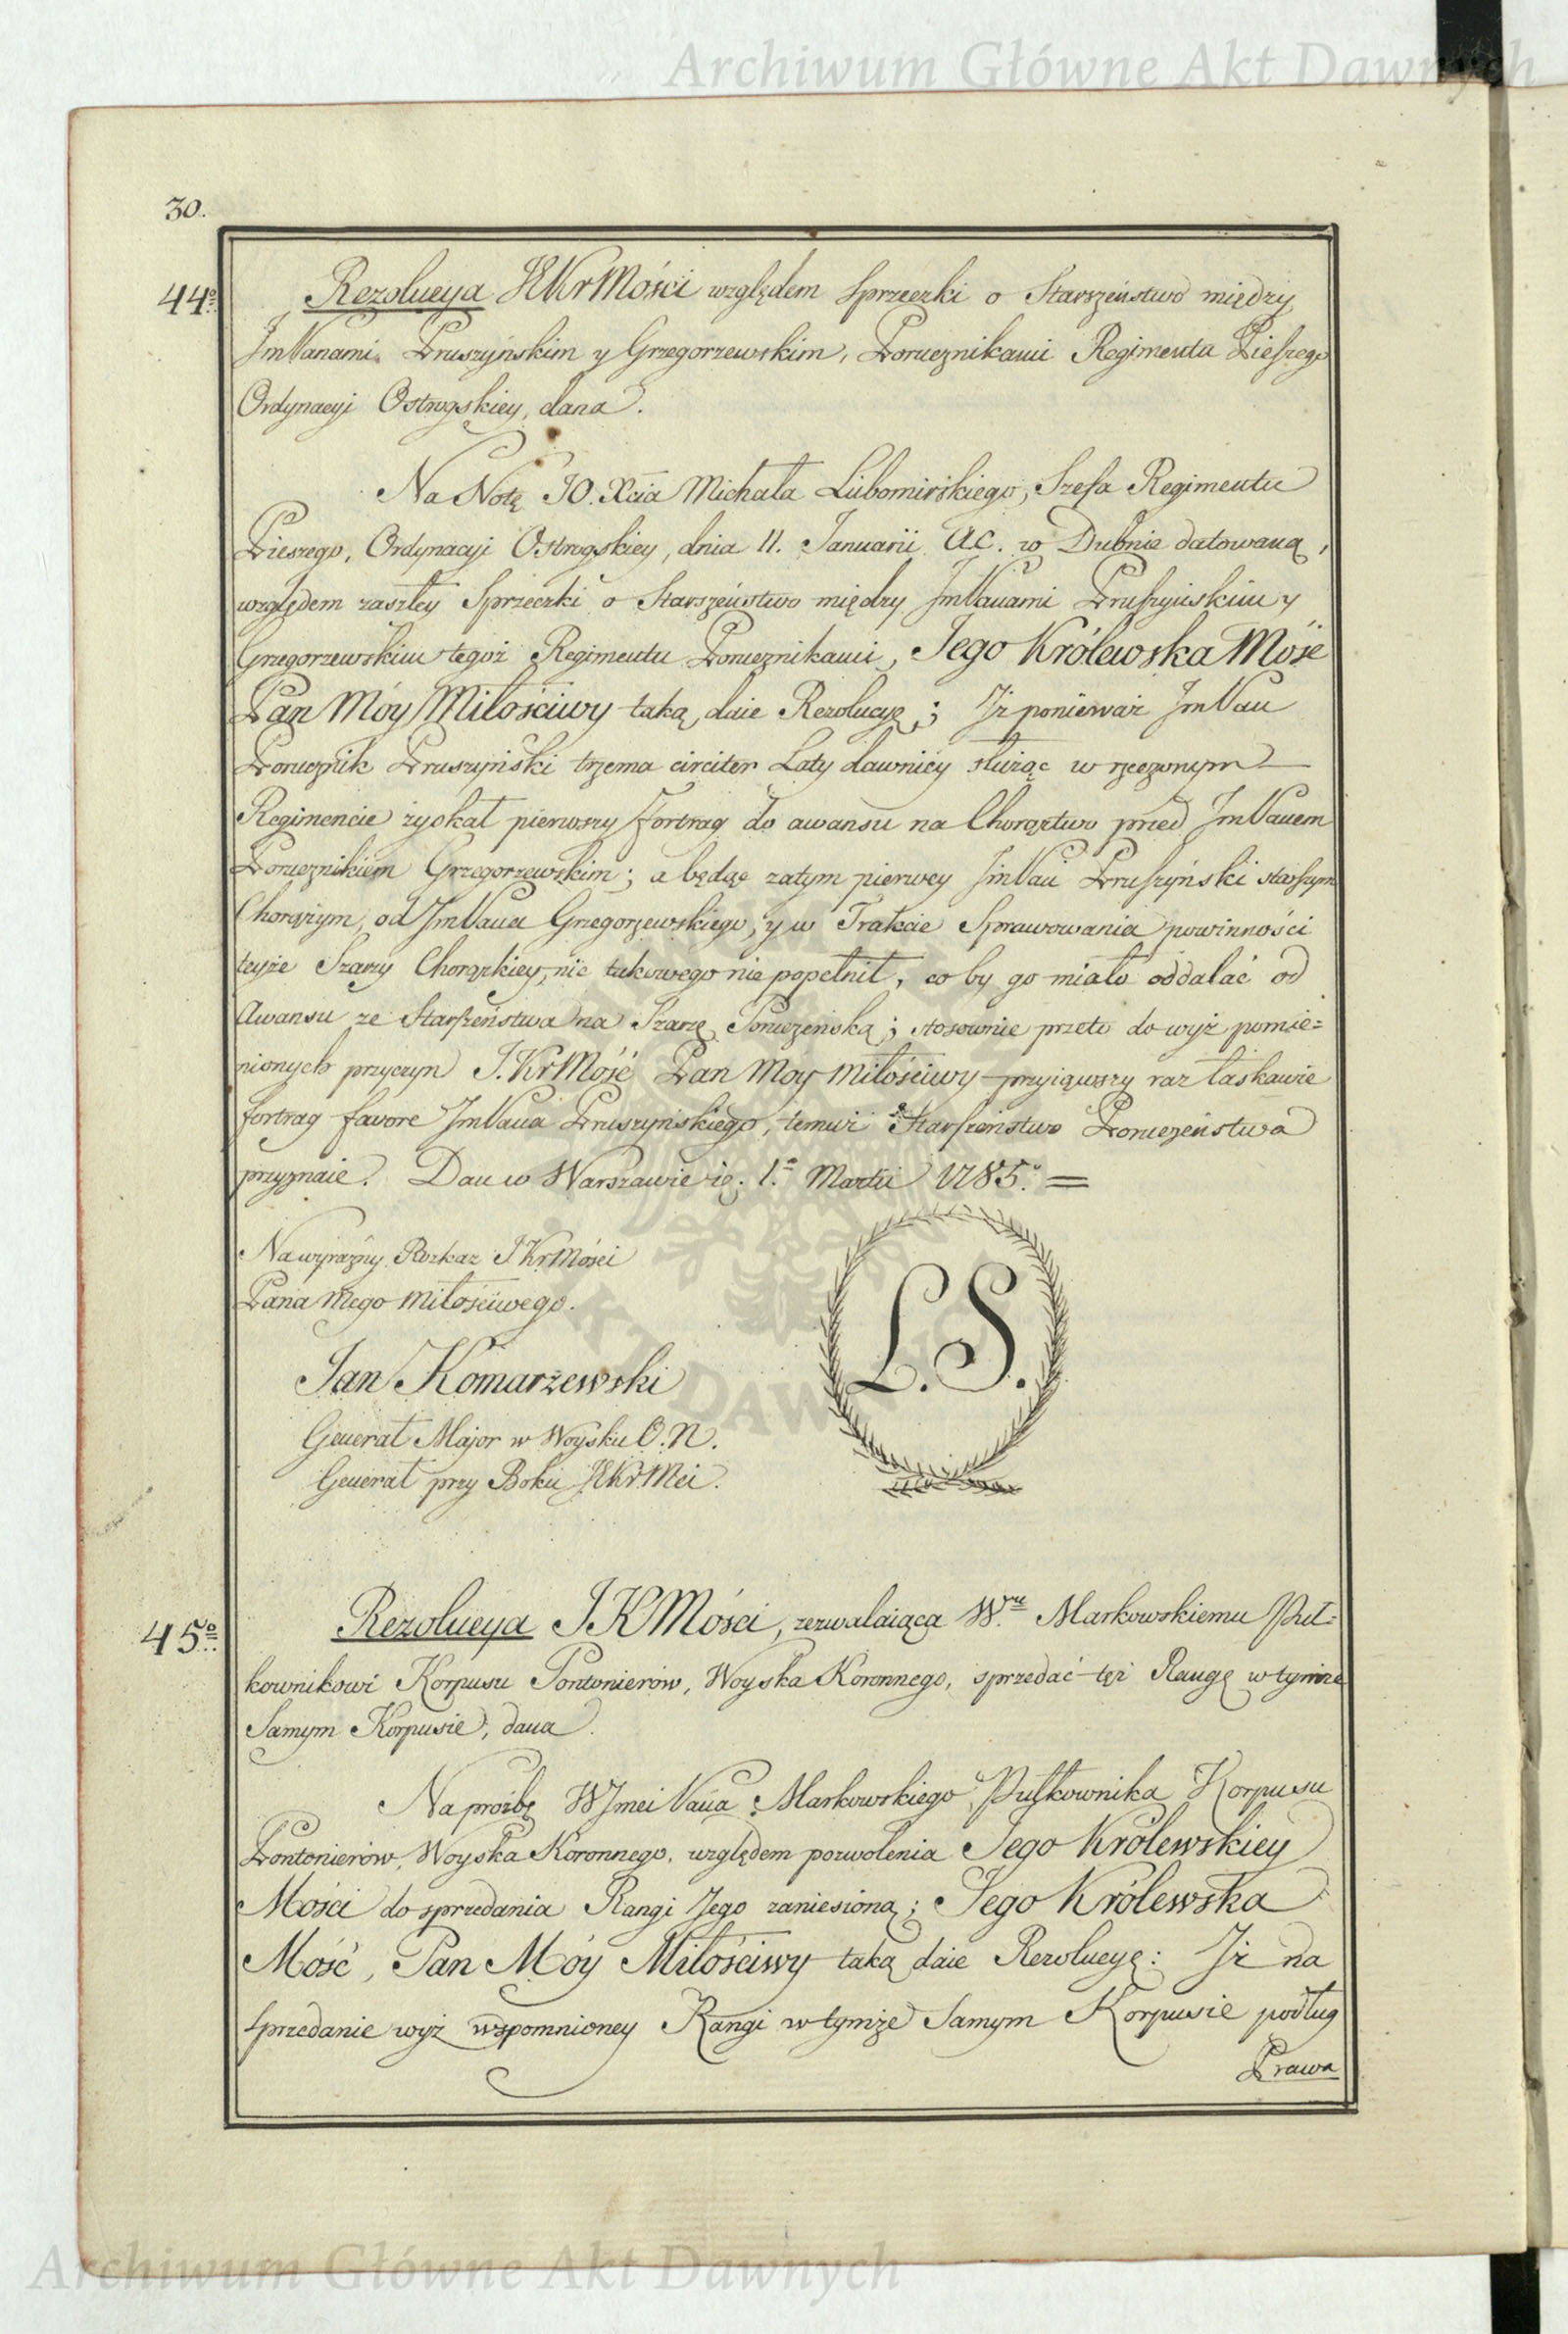 Archiwum Główne Akt Dawnych
30.
44º
Rezolucya JKKrMości względem sprzeczki o Starszeństwo między
JmPanami Pruszyńskim y Grzegorzewskim, Porucznikami Regimentu Pieszego
Ordynacyi Ostrogskiey, dana.
Na Notę JO. Xcia Michała Lubomirskiego, Szefa Regimentu
Pieszego, Ordynacyi Ostrogskiey, dnia 11. Januarii a.c. w Dubnie datowaną,
względem zaszłey Sprzeczki o Starszeństwo między JmPanami Pruszyńskim y
Grzegorzewskim tegoż Regimentu Porucznikami, Jego Królewska Mość
Pan Móy Miłościwy taką daie Rezolucyę; Iż ponieważ JmPan
Porucznik Pruszyński trzema circiter Laty dawniey służąc w rzeczonym
Regimencie zyskał pierwszy fortrag do awansu na Chorąztwo przed JmPanem
Porucznikiem Grzegorzewskim; a będąc zatym pierwey JmPan Pruszyński starszym
Chorążym, od JmPana Grzegorzewskiego, y w Trakcie Sprawowania powinności
teyże Szarży Chorązkiey, nic takowego nie popełnił, co by go miało oddalać od
Awansu ze Starszeństwa na Szarżę Poruczeńską; stosownie przeto do wyż pomie=
nionych przyczyn J.KrMość Pan Moy Miłościwy przyiąwszy raz łaskawie
fortrag favore JmPana Pruszyńskiego, temuż Starszeństwo Poruczeństwa
przyznaie. Dan w Warszawie 1.ª Martii 1785.º =
Na wyraźny Rozkaz JKrMości
Pana Mego Miłościwego.
Jan Komarzewski
Generał Major w Woysku O.N.
Generał przy Boku JKKrMci.
L.S.
45º
Rezolucya JKMości, zezwalaiąca W.mu Markowskiemu Puł=
kownikowi Korpusu Pontonierów, Woyska Koronnego, sprzedać tęż Rangę w tymże
Samym Korpusie, dana.
Na proźbę WJmci Pana Markowskiego Pułkownika Korpusu
Pontonierów, Woyska Koronnego, względem pozwolenia Jego Królewskiey
Mości do sprzedania Rangi Jego zaniesioną; Jego Królewska
Mość, Pan Móy Miłościwy taką daie Rezolucyę: Iż na
sprzedanie wyż wspomnioney Rangi w tymże Samym Korpusie podług
Prawa
Archiwum Główne Akt Dawnych